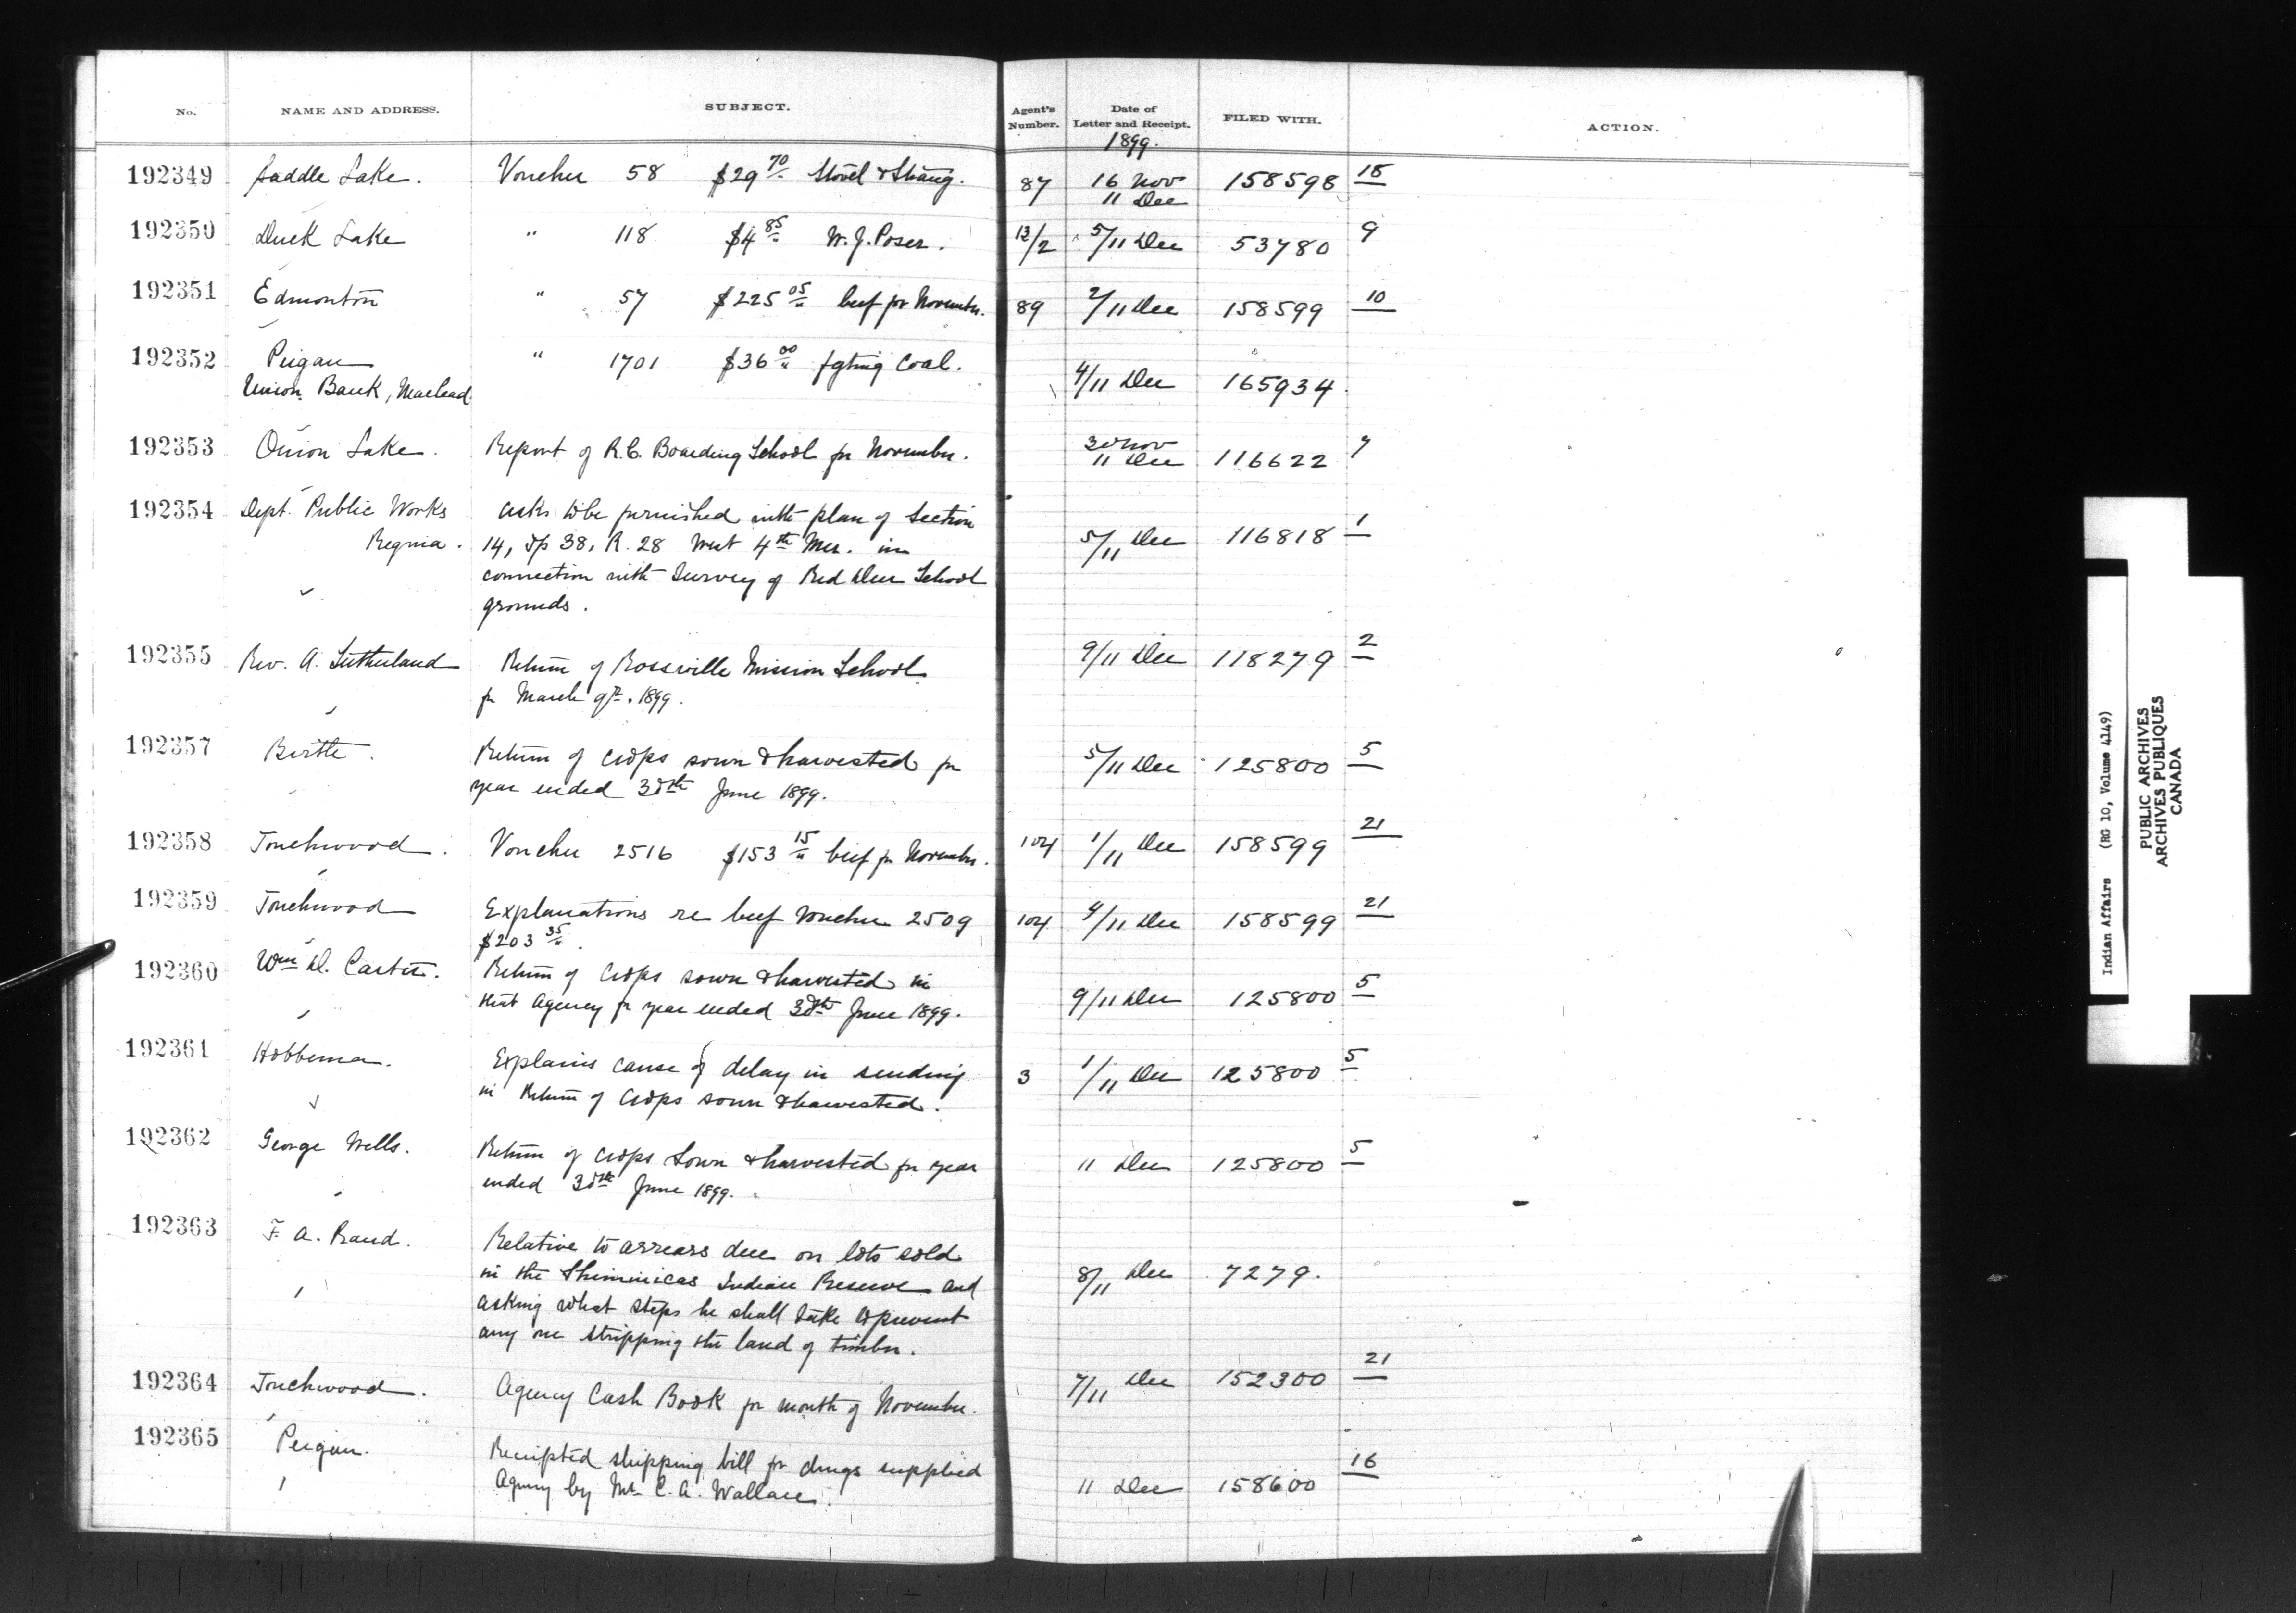 No. NAME AND ADDRESS. SUBJECT. Agent's Number. Date of Letter and Receipt. FILED WITH. ACTION.
1899.
192349 Saddle Lake. Voucher 58 $29 70/" Stovel & Strang. 87 16 Nov 11 Dec 158598 18
192350 Duck Lake " 118 $4 85/" W. J. Poser. 12/2 5/11 Dec 53780 9
192351 Edmonton " 57 $225 05/" beef for November. 89 2/11 Dec 158599 10
192352 Peigan " 1701 $36 00/" fgting Coal.
Union Bank, Macleod 4/11 Dec 165934.
192353 Onion Lake. Report of R.C. Boarding School for November. 30 Nov 11 Dec 116622 7
192354 Dept. Public Works asks to be furnished with plan of Section
Regina. 14, Tp 38, R. 28 West 4th Mer. in 5/11 Dec 116818 1
connection with Survey of Red Deer School
grounds.
192355 Rev. A. Sutherland Return of Rossville Mission School 9/11 Dec 118279 2
for March qr. 1899.
192357 Birtle. Return of crops sown & harvested for 5/11 Dec 125800 5
year ended 30th June 1899.
192358 Touchwood. Voucher 2516 $153 15/" beef for November. 104 1/11 Dec 158599 21
192359 Touchwood Explanations re beef voucher 2509 104 4/11 Dec 158599 21
$203 35/".
192360 Wm D. Carter. Return of crops sown & harvested in
that Agency for year ended 30th June 1899. 9/11 Dec 125800 5
192361 Hobbema. Explains cause of delay in sending 3 1/11 Dec 125800 5
in Return of Crops sown & harvested.
192362 George Wells. Return of crops sown & harvested for year 11 Dec 125800 5
ended 30th June 1899.
192363 F. A. Rand. Relative to arrears due on lots sold
in the Shiminicas Indian Reserve and 8/11 Dec 7279.
asking what steps he shall take to prevent
any one stripping the land of timber.
192364 Touchwood. Agency Cash Book for month of November. 7/11 Dec 152300 21
192365 Peigan. Receipted shipping bill for drugs supplied
Agency by Mr. C. A. Wallace. 11 Dec 158600 16
Indian Affairs (RG 10, Volume 4149)
PUBLIC ARCHIVES
ARCHIVES PUBLIQUES
CANADA